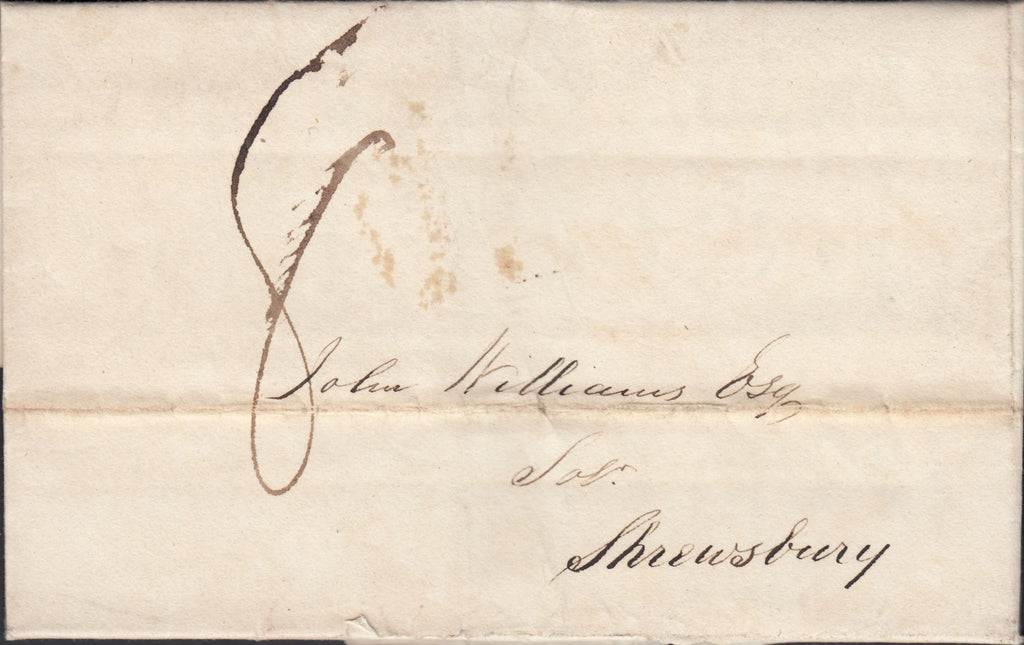 8
John Williams Esq
Solr.
Shrewsbury